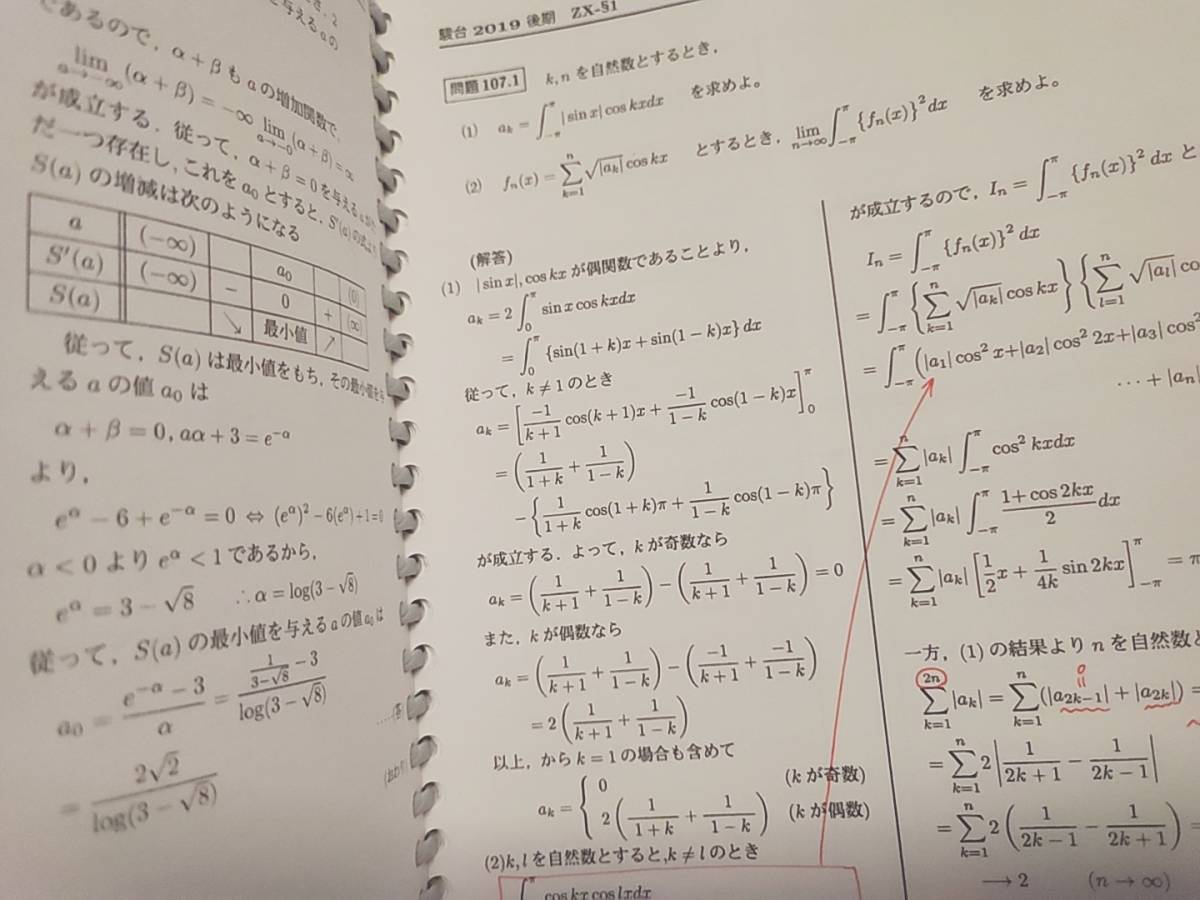 であるので，α＋βもaの増加関数で，
lim_{a→-∞}(α+β)=-∞ lim_{a→-0}(α+β)=∞
が成立する．従って，α+β=0を与えるaがた
だ一つ存在し，これをa₀とすると，S'(a)の
S(a)の増減は次のようになる
a (-∞) a₀ (0)
S'(a) (-∞) − 0 + (∞)
S(a) ↘ 最小値 ↗
従って，S(a)は最小値をもち，その最小値を与
えるaの値a₀は
α+β=0, aα+3=e^{-α}
より，
e^α−6+e^{-α}=0 ⇔ (e^α)²−6(e^α)+1=0
α<0よりe^α<1であるから，
e^α=3−√8 ∴α=log(3−√8)
従って，S(a)の最小値を与えるaの値a₀は
a₀=\frac{e^{-α}−3}{α}=\frac{\frac{1}{3−√8}−3}{log(3−√8)}
=\frac{2√2}{log(3−√8)} ……(答)
(おわり)
駿台 2019 後期 ZX-§1
問題 107.1 k,nを自然数とするとき，
(1) a_k=∫_{-π}^{π}|sin x|cos kxdx を求めよ。
(2) f_n(x)=∑_{k=1}^{n}√|a_k| cos kx とするとき，lim_{n→∞}∫_{-π}^{π}{f_n(x)}²dx を求めよ。
(解答)
(1) |sin x|, cos kxが偶関数であることより，
a_k=2∫_0^π sin x cos kxdx
=∫_0^π{sin(1+k)x+sin(1−k)x}dx
従って，k≠1のとき
a_k=[\frac{-1}{k+1}cos(k+1)x+\frac{-1}{1−k}cos(1−k)x]_0^π
=(\frac{1}{1+k}+\frac{1}{1−k})
−{\frac{1}{1+k}cos(1+k)π+\frac{1}{1−k}cos(1−k)π}
が成立する．よって，kが奇数なら
a_k=(\frac{1}{k+1}+\frac{1}{1−k})−(\frac{1}{k+1}+\frac{1}{1−k})=0
また，kが偶数なら
a_k=(\frac{1}{k+1}+\frac{1}{1−k})−(\frac{-1}{k+1}+\frac{-1}{1−k})
=2(\frac{1}{k+1}+\frac{1}{1−k})
以上，からk=1の場合も含めて
a_k={ 0 (kが奇数)
2(\frac{1}{1+k}+\frac{1}{1−k}) (kが偶数)
(2)k,lを自然数とすると,k≠lのとき
∫^π cos kx cos lxdx
が成立するので，I_n=∫_{-π}^{π}{f_n(x)}²dx と
I_n=∫_{-π}^{π}{f_n(x)}²dx
=∫_{-π}^{π}{∑_{k=1}^{n}√|a_k| cos kx}{∑_{l=1}^{n}√|a_l| co
=∫_{-π}^{π}(|a₁|cos²x+|a₂|cos²2x+|a₃|cos²
…+|a_n|
=∑_{k=1}^{n}|a_k|∫_{-π}^{π}cos²kxdx
=∑_{k=1}^{n}|a_k|∫_{-π}^{π}\frac{1+cos 2kx}{2}dx
=∑_{k=1}^{n}|a_k|[\frac{1}{2}x+\frac{1}{4k}sin 2kx]_{-π}^{π}=π
一方，(1)の結果よりnを自然数と
0
∑_{k=1}^{2n}|a_k|=∑_{k=1}^{n}(|a_{2k−1}|+|a_{2k}|)=
=∑_{k=1}^{n}2|\frac{1}{2k+1}−\frac{1}{2k−1}|
=∑_{k=1}^{n}2(\frac{1}{2k−1}−\frac{1}{2k+1})=
→2 (n→∞)